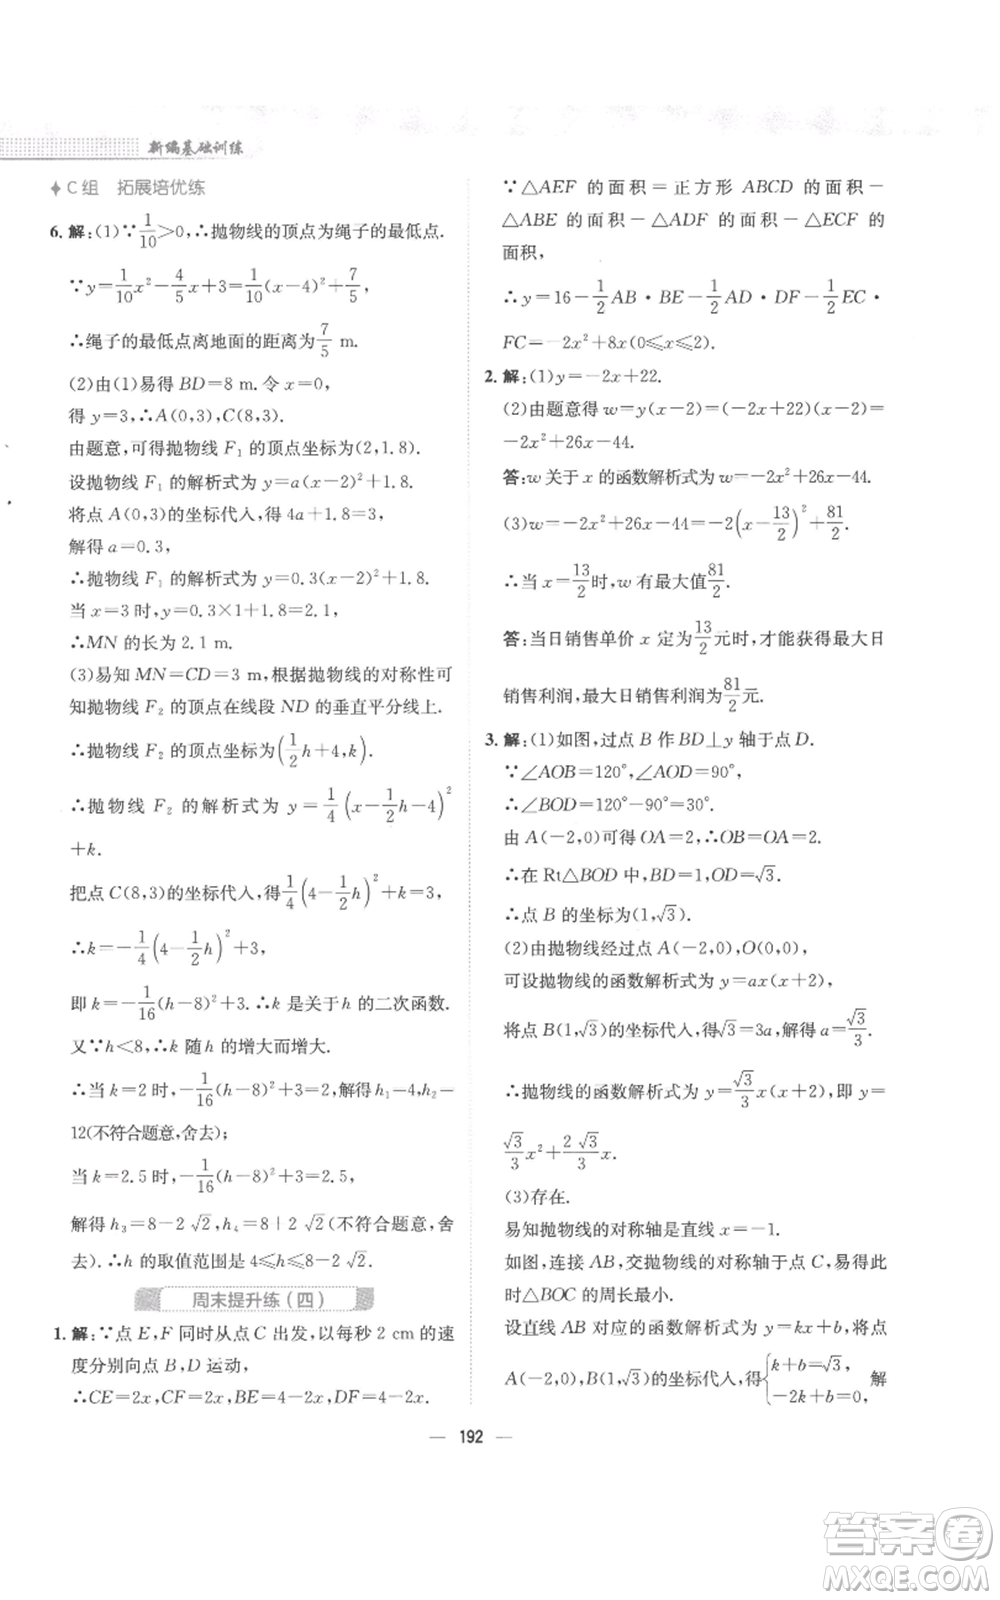 新编基础训练
C组 拓展培优练
6. 解:(1)∵1/10>0,∴抛物线的顶点为绳子的最低点.
∵y=1/10x²-4/5x+3=1/10(x-4)²+7/5,
∴绳子的最低点离地面的距离为7/5 m.
(2)由(1)易得 BD=8 m. 令 x=0,
得 y=3,∴A(0,3),C(8,3).
由题意,可得抛物线 F₁ 的顶点坐标为(2,1.8).
设抛物线 F₁ 的解析式为 y=a(x-2)²+1.8.
将点 A(0,3)的坐标代入,得 4a+1.8=3,
解得 a=0.3,
∴抛物线 F₁ 的解析式为 y=0.3(x-2)²+1.8.
当 x=3 时,y=0.3×1+1.8=2.1.
∴MN 的长为 2.1 m.
(3)易知 MN=CD=3 m,根据抛物线的对称性可
知抛物线 F₂ 的顶点在线段 ND 的垂直平分线上.
∴抛物线 F₂ 的顶点坐标为(1/2h+4,k).
∴抛物线 F₂ 的解析式为 y=1/4(x-1/2h-4)²
+k.
把点 C(8,3)的坐标代入,得1/4(4-1/2h)²+k=3,
∴k=-1/4(4-1/2h)²+3,
即 k=-1/16(h-8)²+3.∴k 是关于h 的二次函数.
又∵h<8,∴k 随 h 的增大而增大.
∴当 k=2 时,-1/16(h-8)²+3=2,解得 h₁-4,h₂-
12(不符合题意,舍去);
当 k=2.5 时,-1/16(h-8)²+3=2.5,
解得 h₃=8-2√2,h₄=8|2√2(不符合题意,舍
去).∴h 的取值范围是 4≤h≤8-2√2.
周末提升练(四)
1. 解:∵点 E,F 同时从点 C 出发,以每秒 2 cm 的速
度分别向点 B,D 运动,
∴CE=2x,CF=2x,BE=4-2x,DF=4-2x.
∵△AEF 的面积=正方形 ABCD 的面积-
△ABE 的面积-△ADF 的面积-△ECF 的
面积,
∴y=16-1/2AB·BE-1/2AD·DF-1/2EC·
FC=-2x²+8x(0≤x≤2).
2. 解:(1)y=-2x+22.
(2)由题意得 w=y(x-2)=(-2x+22)(x-2)=
-2x²+26x-44.
答:w 关于 x 的函数解析式为 w=-2x²+26x-44.
(3)w=-2x²+26x-44=-2(x-13/2)²+81/2.
∴当 x=13/2时,w 有最大值81/2.
答:当日销售单价 x 定为13/2元时,才能获得最大日
销售利润,最大日销售利润为81/2元.
3. 解:(1)如图,过点 B 作 BD⊥y 轴于点 D.
∵∠AOB=120°,∠AOD=90°,
∴∠BOD=120°-90°=30°.
由 A(-2,0)可得 OA=2,∴OB=OA=2.
∴在 Rt△BOD 中,BD=1,OD=√3.
∴点 B 的坐标为(1,√3).
(2)由抛物线经过点 A(-2,0),O(0,0),
可设抛物线的函数解析式为 y=ax(x+2).
将点 B(1,√3)的坐标代入,得√3=3a,解得 a=√3/3.
∴抛物线的函数解析式为 y=√3/3x(x+2),即 y=
√3/3x²+2√3/3x.
(3)存在.
易知抛物线的对称轴是直线 x=-1.
如图,连接 AB,交抛物线的对称轴于点 C,此
时△BOC 的周长最小.
设直线 AB 对应的函数解析式为 y=kx+b,将点
A(-2,0),B(1,√3)的坐标代入,得{k+b=√3, -2k+b=0, 解
192
答案卷